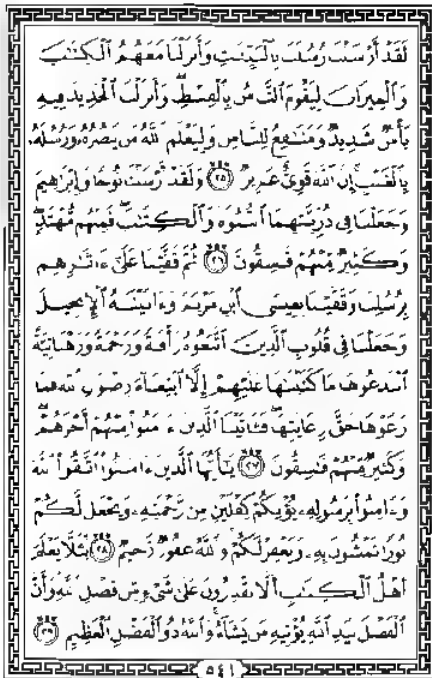 لَقَدْ أَرْسَلْنَا رُسُلَنَا بِالْبَيِّنَٰتِ وَأَنزَلْنَا مَعَهُمُ الْكِتَٰبَ
وَالْمِيزَانَ لِيَقُومَ النَّاسُ بِالْقِسْطِ ۖ وَأَنزَلْنَا الْحَدِيدَ فِيهِ
بَأْسٌ شَدِيدٌ وَمَنَٰفِعُ لِلنَّاسِ وَلِيَعْلَمَ اللَّهُ مَن يَنصُرُهُۥ وَرُسُلَهُۥ
بِالْغَيْبِ ۚ إِنَّ اللَّهَ قَوِىٌّ عَزِيزٌ ۝٢٥ وَلَقَدْ أَرْسَلْنَا نُوحًا وَإِبْرَٰهِيمَ
وَجَعَلْنَا فِى ذُرِّيَّتِهِمَا النُّبُوَّةَ وَالْكِتَٰبَ ۖ فَمِنْهُم مُّهْتَدٍ ۖ
وَكَثِيرٌ مِّنْهُمْ فَٰسِقُونَ ۝٢٦ ثُمَّ قَفَّيْنَا عَلَىٰٓ ءَاثَٰرِهِم
بِرُسُلِنَا وَقَفَّيْنَا بِعِيسَى ابْنِ مَرْيَمَ وَءَاتَيْنَٰهُ الْإِنجِيلَ
وَجَعَلْنَا فِى قُلُوبِ الَّذِينَ اتَّبَعُوهُ رَأْفَةً وَرَحْمَةً وَرَهْبَانِيَّةً
ابْتَدَعُوهَا مَا كَتَبْنَٰهَا عَلَيْهِمْ إِلَّا ابْتِغَآءَ رِضْوَٰنِ اللَّهِ فَمَا
رَعَوْهَا حَقَّ رِعَايَتِهَا ۖ فَـَٔاتَيْنَا الَّذِينَ ءَامَنُوا۟ مِنْهُمْ أَجْرَهُمْ ۖ
وَكَثِيرٌ مِّنْهُمْ فَٰسِقُونَ ۝٢٧ يَٰٓأَيُّهَا الَّذِينَ ءَامَنُوا۟ اتَّقُوا۟ اللَّهَ
وَءَامِنُوا۟ بِرَسُولِهِۦ يُؤْتِكُمْ كِفْلَيْنِ مِن رَّحْمَتِهِۦ وَيَجْعَل لَّكُمْ
نُورًا تَمْشُونَ بِهِۦ وَيَغْفِرْ لَكُمْ ۚ وَاللَّهُ غَفُورٌ رَّحِيمٌ ۝٢٨ لِّئَلَّا يَعْلَمَ
أَهْلُ الْكِتَٰبِ أَلَّا يَقْدِرُونَ عَلَىٰ شَىْءٍ مِّن فَضْلِ اللَّهِ ۙ وَأَنَّ
الْفَضْلَ بِيَدِ اللَّهِ يُؤْتِيهِ مَن يَشَآءُ ۚ وَاللَّهُ ذُو الْفَضْلِ الْعَظِيمِ ۝٢٩
٥٤١